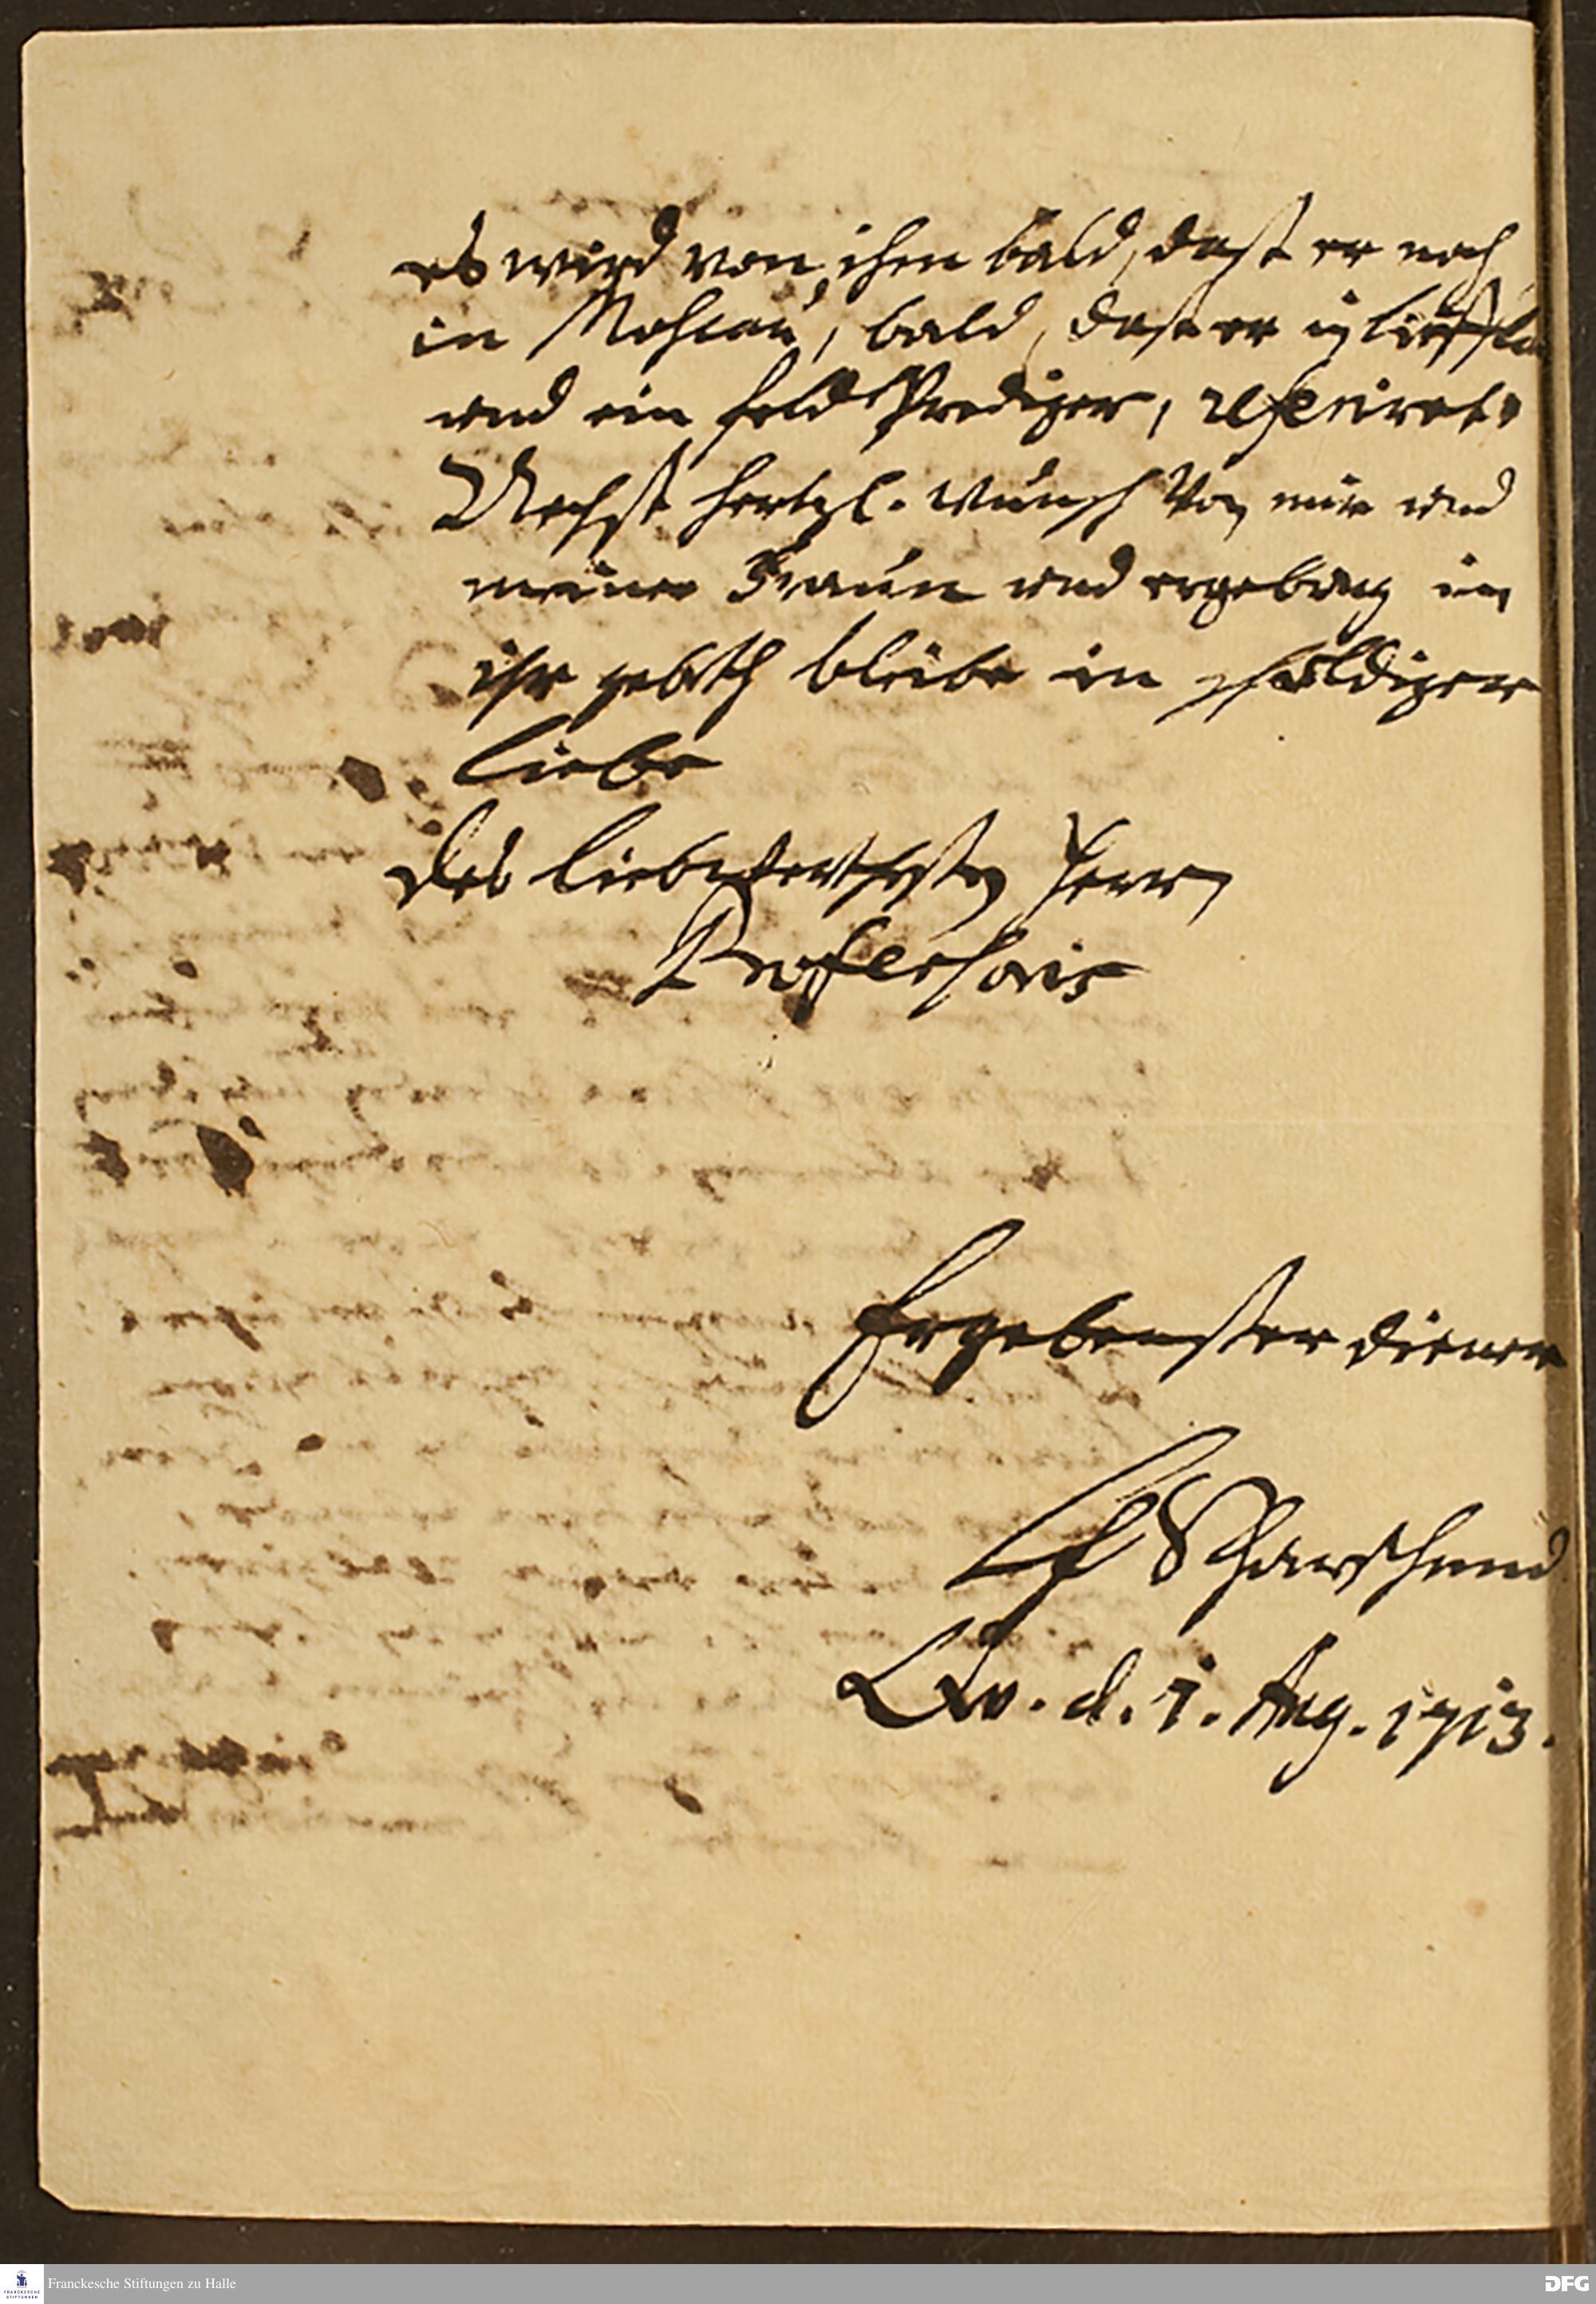 es wird von ihm bald, daß er noch
in Moscau, bald, daß er in Liefflan
und ein feld Prediger, referiret.
Nechst hertzl. wunsch von mir und
meiner Frauen und ergebung in
ihr gebeth bleibe in schuldiger
Liebe
des liebwerthesten Herrn
Professoris
Ergebenster diener
Scharschmid
d. 1. Aug. 1713.
Franckesche Stiftungen zu Halle
DFG